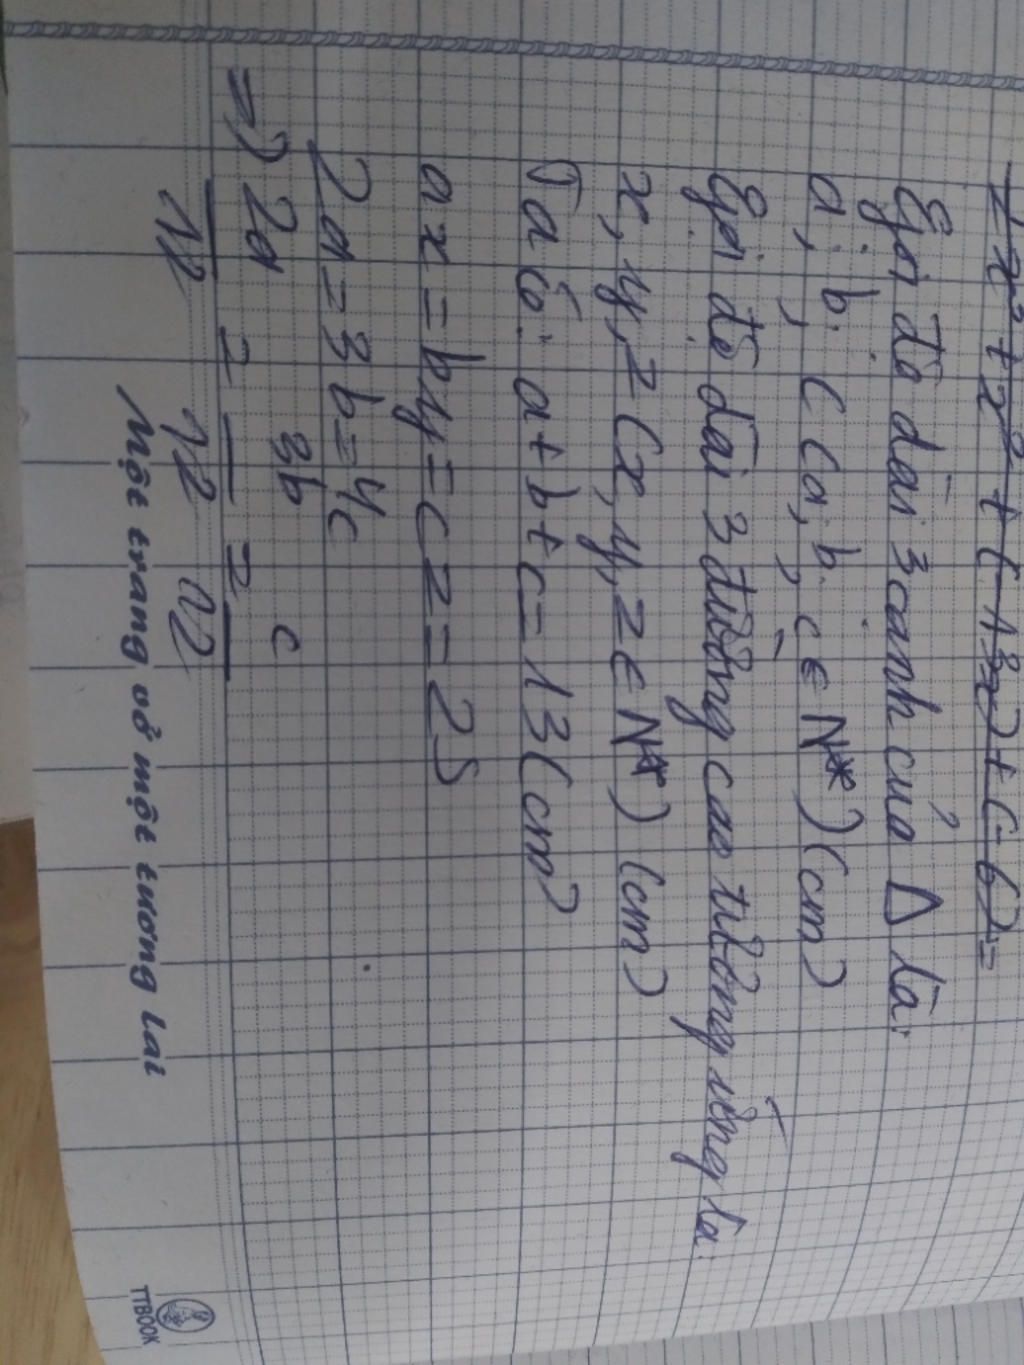 2x³ + x² + (-13x) + (-6) =
Gọi độ dài 3 cạnh của Δ là:
a; b; c (a, b, c ∈ N*) (cm)
Gọi độ dài 3 đường cao tương ứng là:
x, y, z (x, y, z ∈ N*) (cm)
Ta có: a + b + c = 13 (cm)
ax = by = cz = 2S
2a = 3b = 4c
=> 2a = 3b = c
12 12 02
Một trang vở một tương lai
TTBOOK